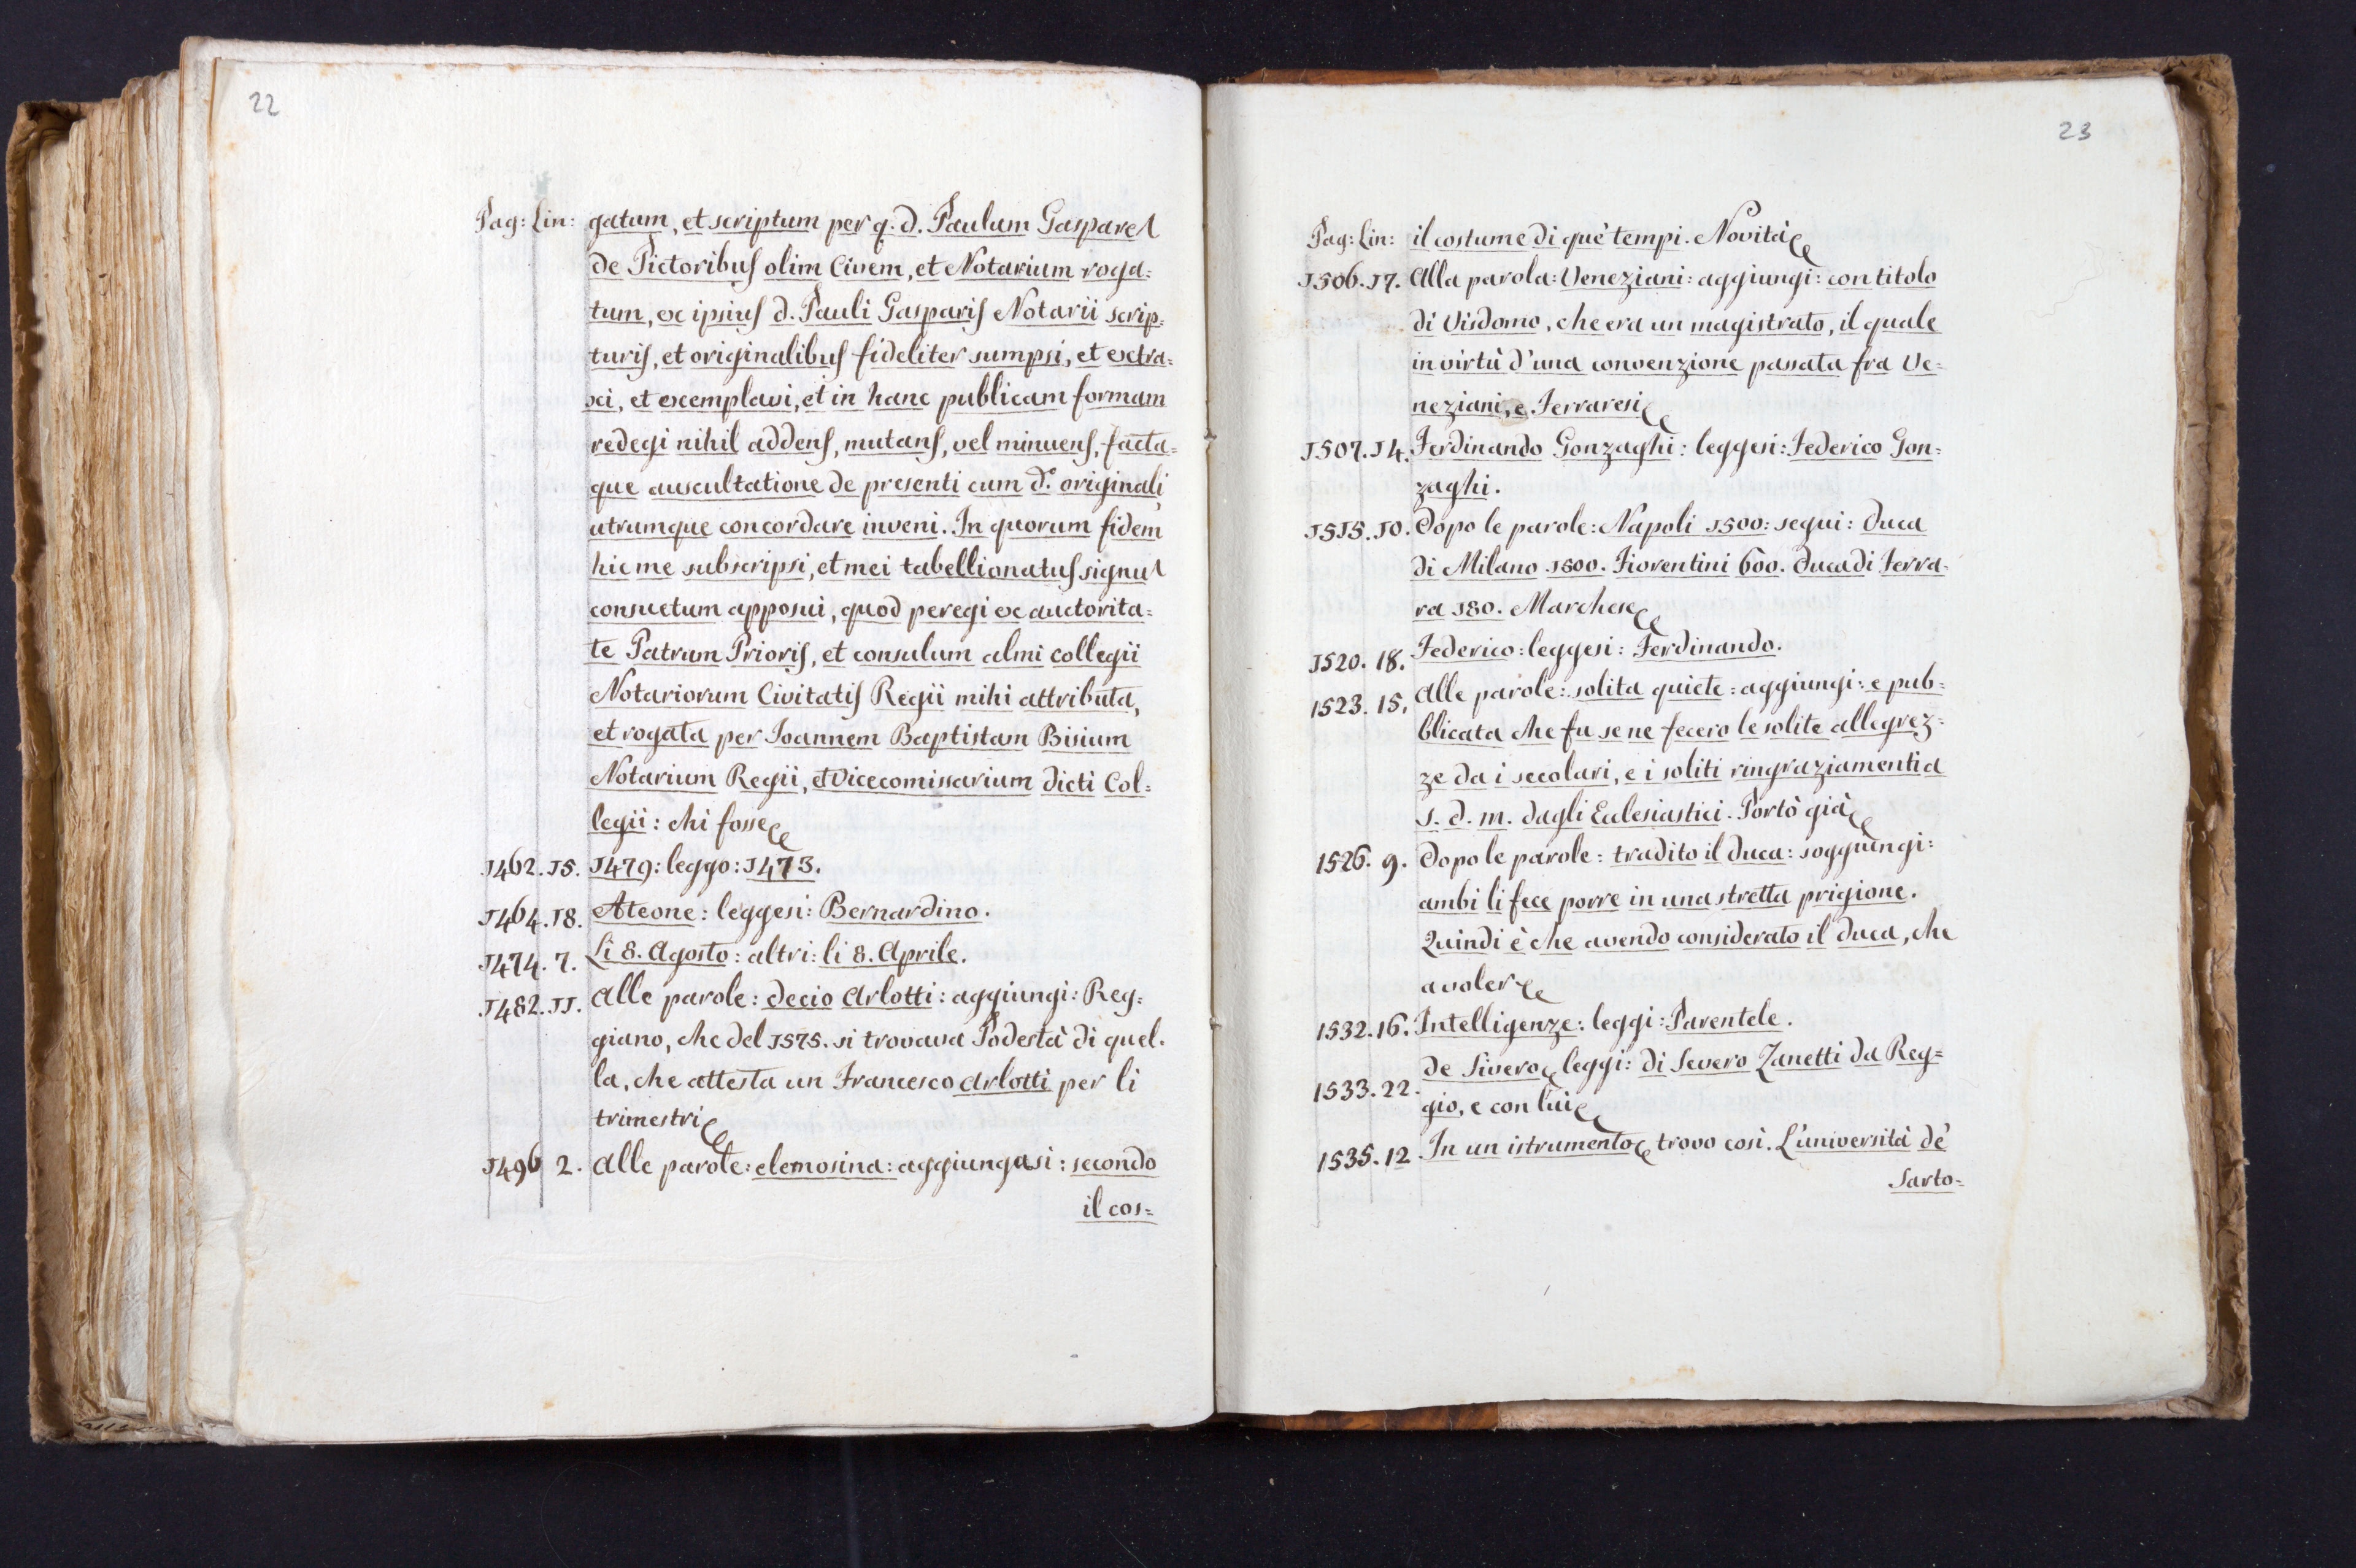 22
Pag: Lin: gatum, et scriptum per q. d. Paulum Gaspare
de Pictoribus olim Civem, et Notarium roga=
tum, ex ipsius d. Pauli Gasparis Notarii scrip=
turis, et originalibus fideliter sumpsi, et extra=
xi, et exemplavi, et in hanc publicam formam
redegi nihil addens, mutans, vel minuens, facta=
que auscultatione de presenti cum d.º originali
utrumque concordare inveni. In quorum fidem
hic me subscripsi, et mei tabellionatus signu
consuetum apposui, quod peregi ex auctorita=
te Patrum Prioris, et consulum almi collegii
Notariorum Civitatis Regii mihi attributa,
et rogata per Joannem Baptistam Bisium
Notarium Regii, et Vicecomissarium dicti Col=
legii: chi fosse
1462. 15. 1479: leggo: 1473.
1464. 18. Ateone: leggesi: Bernardino.
1474. 7. Li 8. Agosto: altri: li 8. Aprile.
1482. 11. Alle parole: Decio Arlotti: aggiungi: Reg=
giano, che del 1575. si trovava Podestà di quel.
la, che attesta un Francesco Arlotti per li
trimestri
1496 2. Alle parole: elemosina: aggiungasi: secondo
il cos=
23
Pag: Lin: il costume di què tempi. Novità
1506. 17. Alla parola: Veneziani: aggiungi: con titolo
di Visdomo, che era un magistrato, il quale
in virtù d'una convenzione passata fra Ve=
neziani, e Ferraresi
1507. 14. Ferdinando Gonzaghi: leggesi: Federico Gon=
zaghi.
1515. 10. Dopo le parole: Napoli 1500: segui: Duca
di Milano 1800. Fiorentini 600. Duca di Ferra=
ra 180. Marchese
1520. 18. Federico: leggesi: Ferdinando.
1523. 15. Alle parole: solita quiete: aggiungi: e pub=
blicata che fu se ne fecero le solite allegrez=
ze da i secolari, e i soliti ringraziamenti a
s. d. m. dagli Eclesiastici. Portò già
1526. 9. Dopo le parole: tradito il Duca: soggiungi:
ambi li fece porre in una stretta prigione.
Quindi è che avendo considerato il Duca, che
a voler
1532. 16. Intelligenze: leggi: Parentele.
1533. 22. de Sivero leggi: di Severo Zanetti da Reg=
gio, e con lui
1535. 12 In un istrumento trovo così. L'università dè
Sarto=